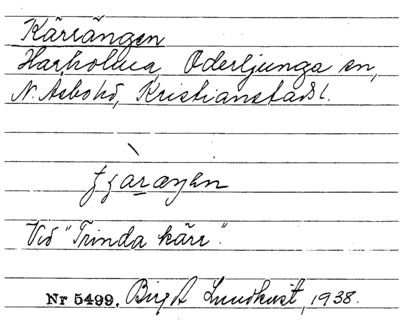 Kärrängen
Harholma, Oderljunga sn,
N. Åsbohd, Kristianstads l.
Vid "Trinda kärr".
Nr 5499. Birgit Lundkvist, 1938.